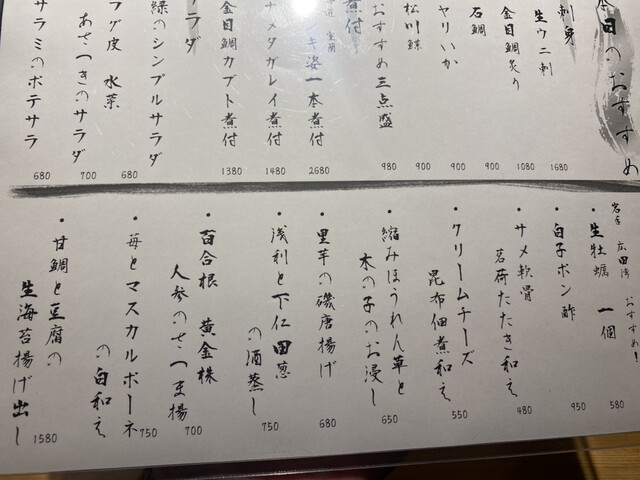 本日のおすすめ
刺身
生ウニ刺 1680
金目鯛炙り 1080
石鯛 900
ヤリいか 900
松川鰈 900
おすすめ三点盛 980
煮付
キ姿一本煮付 2680
ナメタガレイ煮付 1480
金目鯛カブト煮付 1380
サラダ
緑のシンプルサラダ 680
フグ皮 水菜
あさつきのサラダ 700
サラミのポテサラ 680
岩手 広田湾 おすすめ!
・生牡蠣 一個 580
・白子ポン酢 950
・サメ軟骨
茗荷たたき和え 480
・クリームチーズ
昆布佃煮和え 550
・縮みほうれん草と
木の子のお浸し 650
・里芋の磯唐揚げ 680
・浅利と下仁田葱
の酒蒸し 750
・百合根 黄金株
人参のさつま揚 700
・苺とマスカルポーネ
の白和え 750
・甘鯛と豆腐の
生海苔揚げ出し 1580